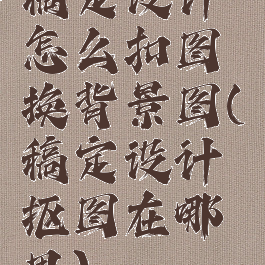 稿定设计
怎么扣图
换背景图(
稿定设计
抠图在哪
里)